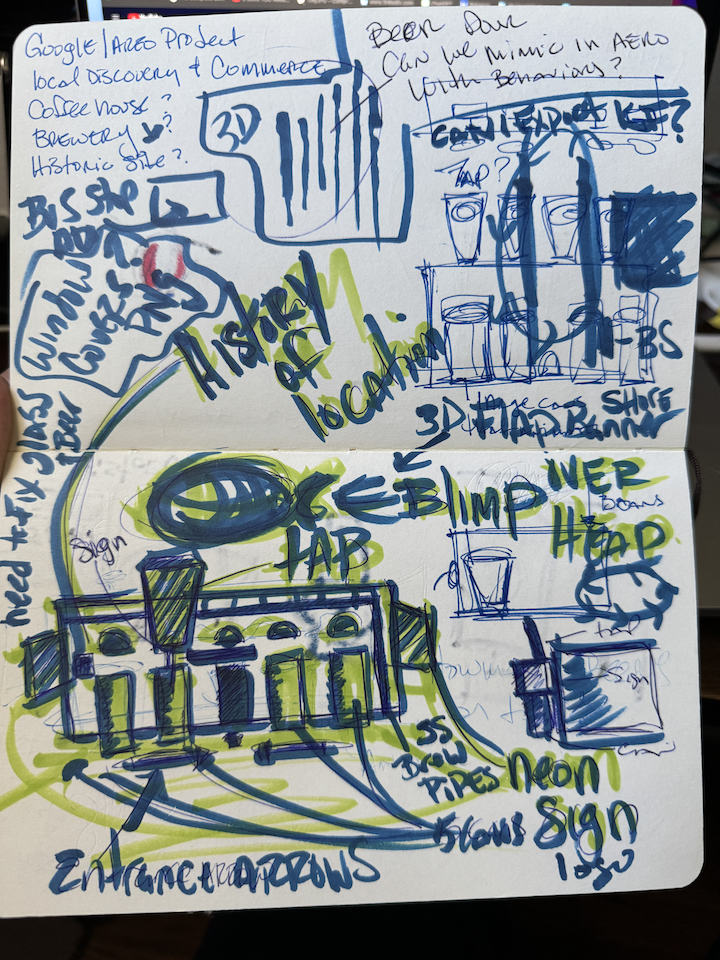 Google/AREO Project
local Discovery & Commerce
Coffee house?
BREWERY ?
Historic Site?
Beer Pour
Can we mimic in AERO
with Behaviors?
3D
can I Export
TAP?
BUS STOP
Window
Covers
PNG
History
of
location
BS
3D
Banner
SHORE
need to Fix glass
Beer
Sign
TAP
Blimp
OVER
HEAD
BEANS
Sign
SS
Brew
PiPES
neon
Sign
logo
Entrance ARROWS